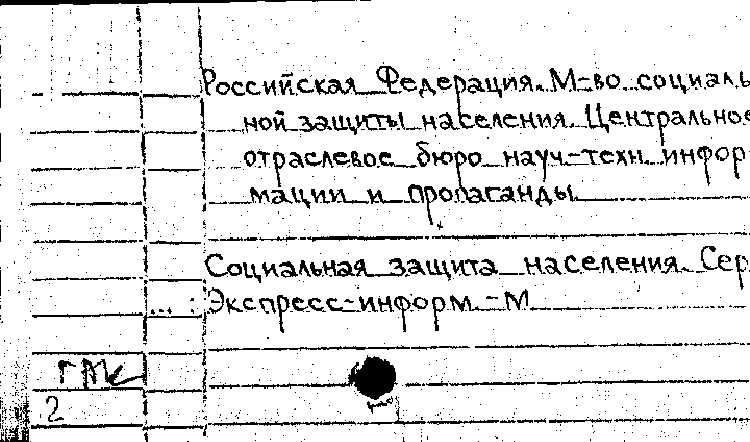 Российская Федерация. М-во социаль
ной защиты населения. Центральное
отраслевое бюро науч.-техн. информ
мации и пропаганды.
Социальная защита населения. Сер
... : Экспресс-информ. - М
2